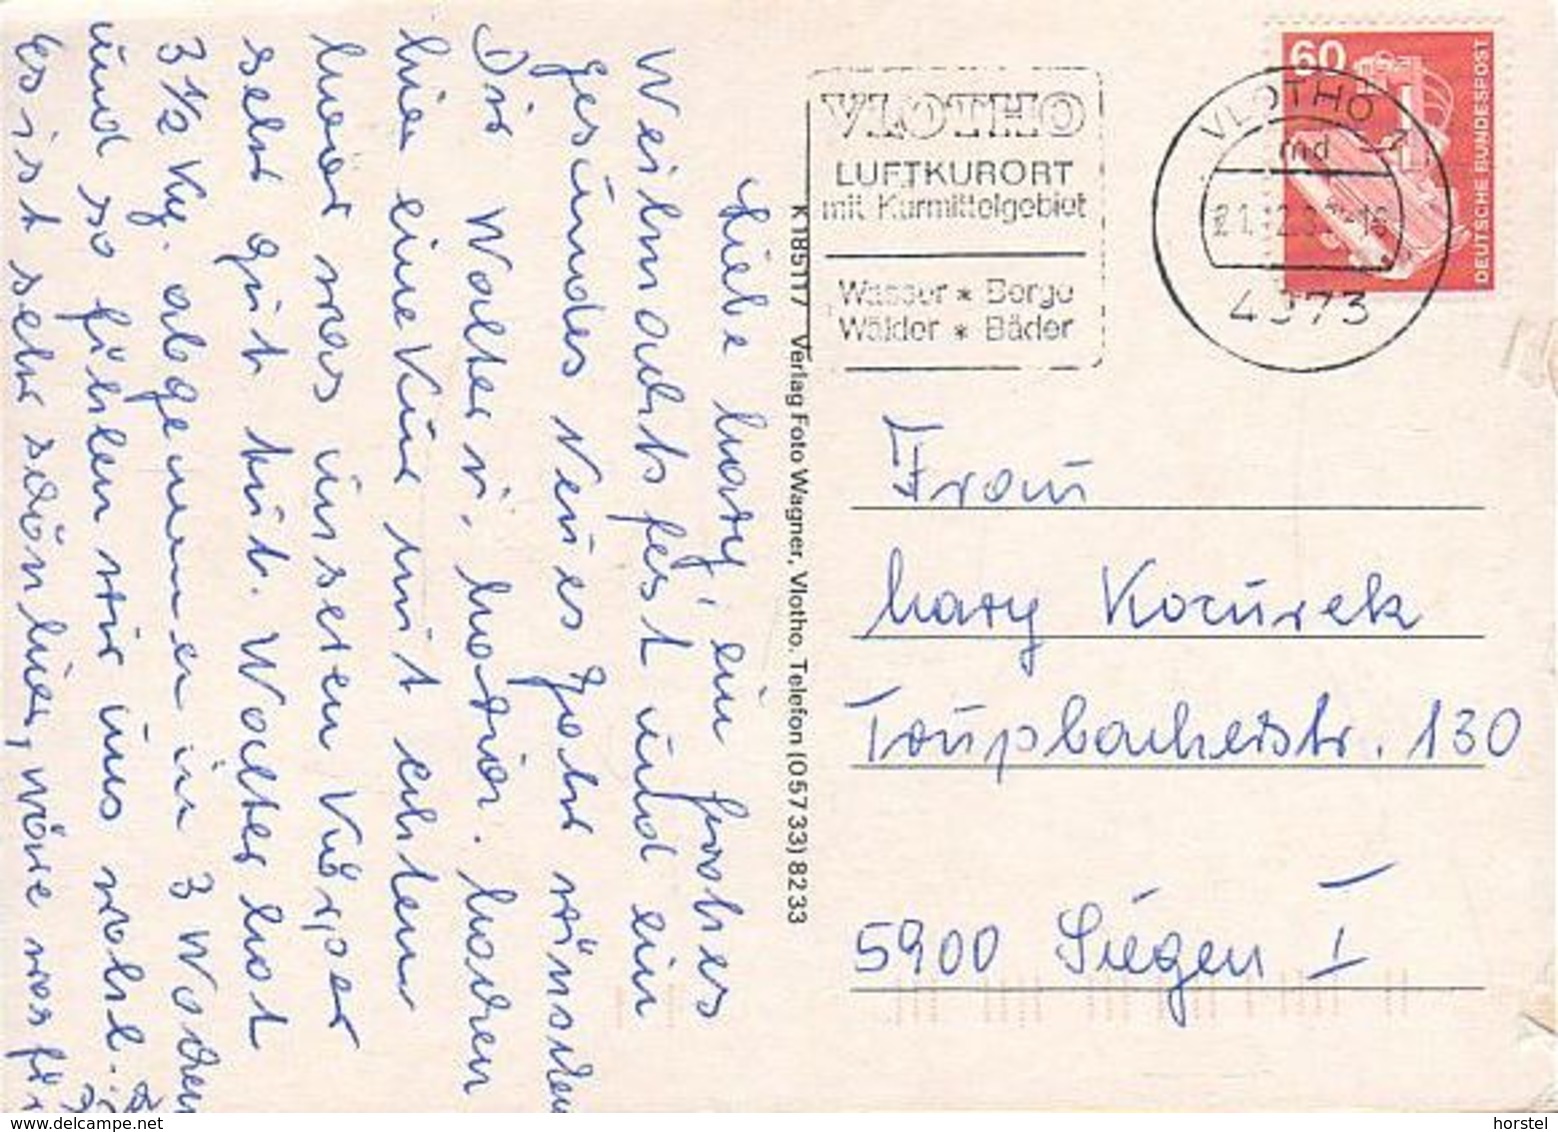 Liebe Mary, ein frohes
Weihnachtsfest und ein
gesundes Neues Jahr wünschen
Dir Walter u. Maria. Machen
hier eine Kur mit
was unseren Körper
sehr gut tut. Walter hat
3 1/2 Kg. abgenommen in 3 Wochen
und so fühlen wir uns wohl.
Es ist sehr schön hier, wäre was für
K 185117 Verlag Foto Wagner, Vlotho, Telefon (05733) 8233
VLOTHO
LUFTKURORT
mit Kurmittelgebiet
Wasser * Berge
Wälder * Bäder
VLOTHO 1
md
4973
60
DEUTSCHE BUNDESPOST
Frau
Mary Kocurek
Trupbacherstr. 130
5900 Siegen 1
www.delcampe.net
horstel